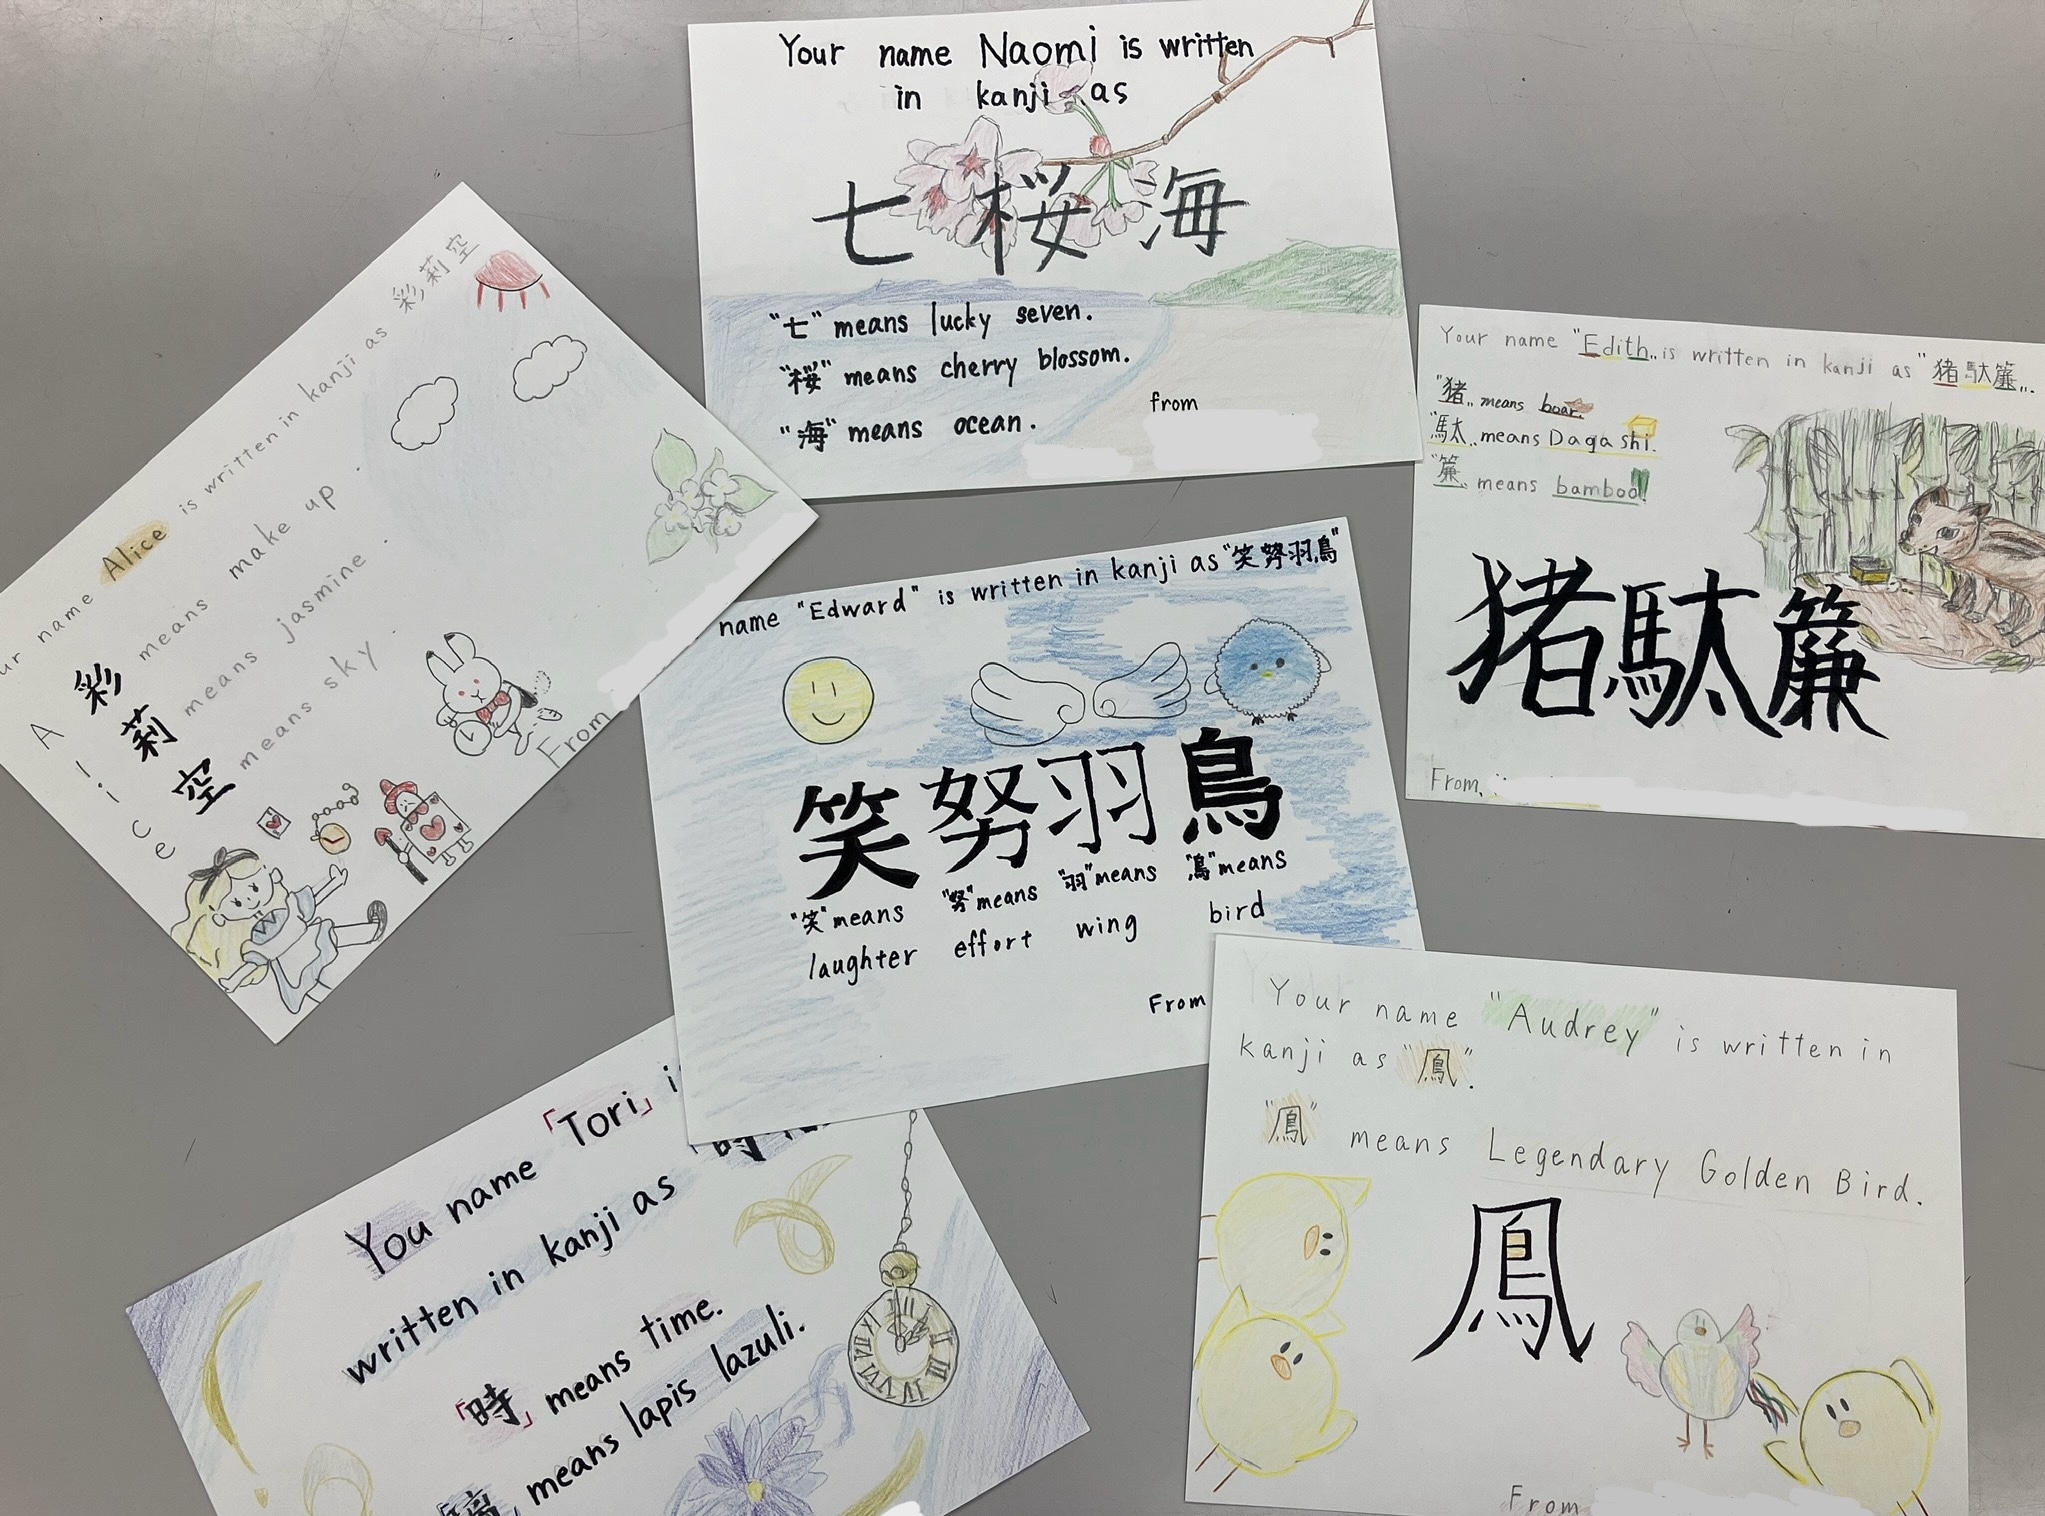 Your name Naomi is written
in kanji as
七桜海
"七" means lucky seven.
"桜" means cherry blossom.
"海" means ocean.
from
ur name Alice is written in kanji as 彩莉空
彩 means make up.
莉 means jasmine.
空 means sky.
Alice
From
Your name "Edith" is written in kanji as "猪駄簾".
"猪" means boar.
"駄" means Dagashi.
"簾" means bamboo
猪駄簾
From
name "Edward" is written in kanji as "笑努羽鳥"
笑努羽鳥
"笑" means laughter
"努" means effort
"羽" means wing
"鳥" means bird
From
You name 「Tori」 i
written in kanji as 時
「時」 means time.
「璃」 means lapis lazuli.
Your name "Audrey" is written in
kanji as "鳳".
"鳳" means Legendary Golden Bird.
鳳
From